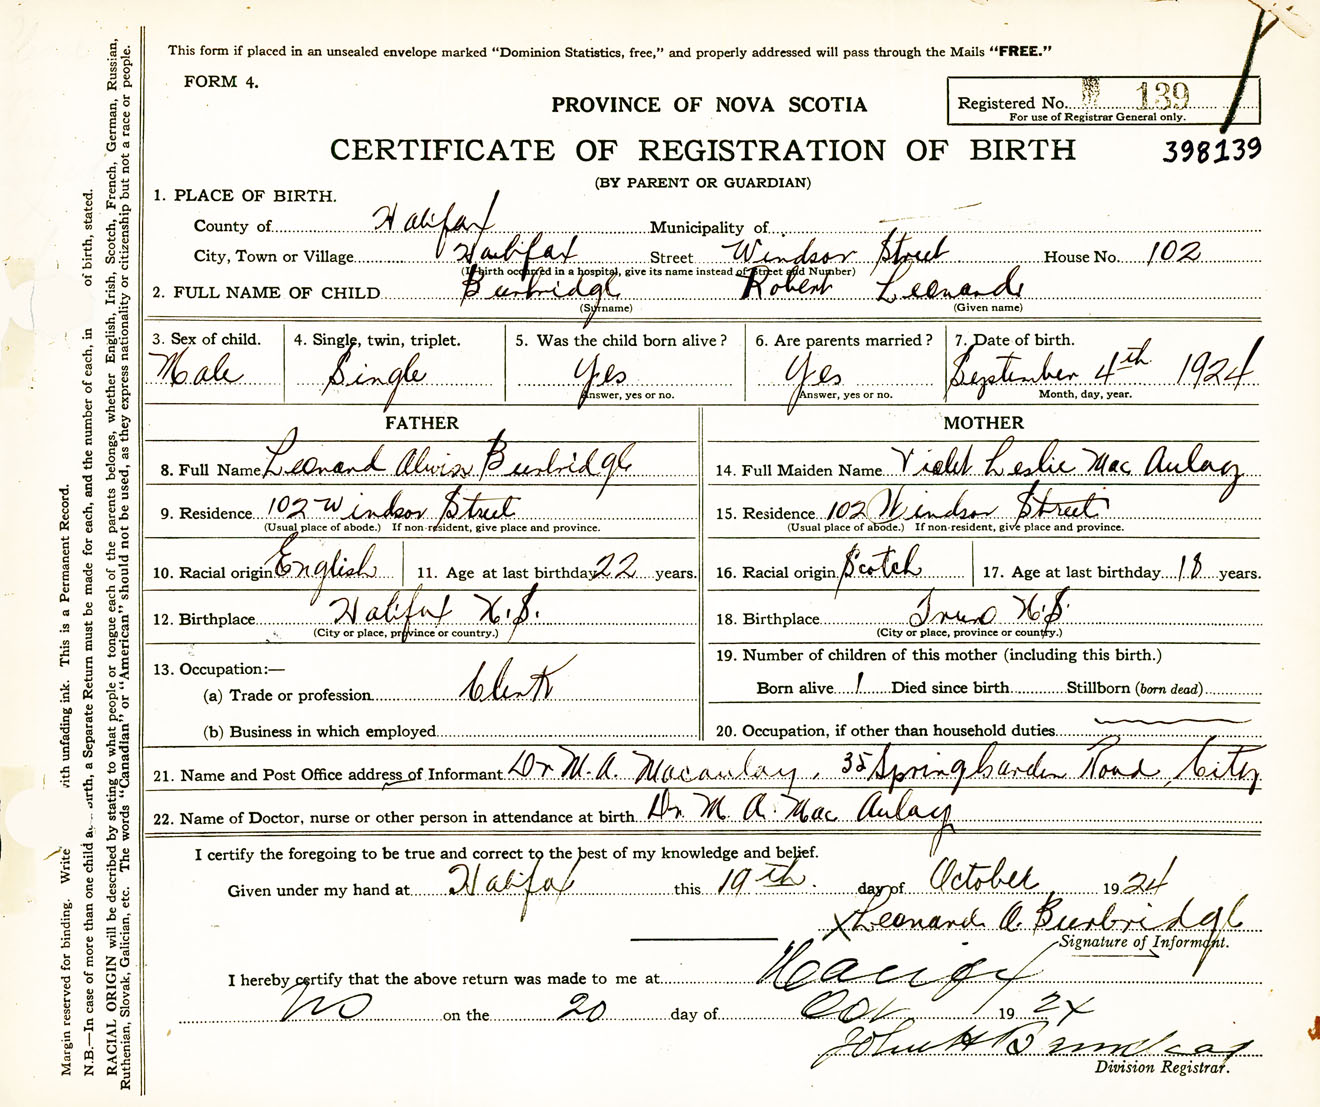 This form if placed in an unsealed envelope marked “Dominion Statistics, free,” and properly addressed will pass through the Mails “FREE.”
FORM 4.
PROVINCE OF NOVA SCOTIA
Registered No. 139
For use of Registrar General only.
CERTIFICATE OF REGISTRATION OF BIRTH
398139
(BY PARENT OR GUARDIAN)
1. PLACE OF BIRTH.
County of Halifax Municipality of
City, Town or Village Halifax Street Windsor Street House No. 102
(If birth occurred in a hospital, give its name instead of Street and Number)
2. FULL NAME OF CHILD Burbridge Robert Leonard
(Surname) (Given name)
3. Sex of child. 4. Single, twin, triplet. 5. Was the child born alive? 6. Are parents married? 7. Date of birth.
Male Single Yes Yes September 4th 1924
Answer, yes or no. Answer, yes or no. Month, day, year.
FATHER
8. Full Name Leonard Alwin Burbridge
9. Residence 102 Windsor Street
(Usual place of abode.) If non-resident, give place and province.
10. Racial origin English 11. Age at last birthday 22 years.
12. Birthplace Halifax N.S.
(City or place, province or country.)
13. Occupation:—
(a) Trade or profession Clerk
(b) Business in which employed
MOTHER
14. Full Maiden Name Violet Leslie Mac Aulay
15. Residence 102 Windsor Street
(Usual place of abode.) If non-resident, give place and province.
16. Racial origin Scotch 17. Age at last birthday 18 years.
18. Birthplace Truro N.S.
(City or place, province or country.)
19. Number of children of this mother (including this birth.)
Born alive 1 Died since birth Stillborn (born dead)
20. Occupation, if other than household duties
21. Name and Post Office address of Informant Dr M. A. Macaulay, 35 Spring Garden Road, City
22. Name of Doctor, nurse or other person in attendance at birth Dr. M. A. Mac Aulay
I certify the foregoing to be true and correct to the best of my knowledge and belief.
Given under my hand at Halifax this 19th. day of October 1924
X Leonard A. Burbridge
Signature of Informant.
I hereby certify that the above return was made to me at Halifax
NS on the 20 day of Oct 1924
John H
Division Registrar.
Margin reserved for binding. Write with unfading ink. This is a Permanent Record.
N.B.—In case of more than one child a birth, a Separate Return must be made for each, and the number of each, in of birth, stated.
RACIAL ORIGIN will be described by stating to what people or tongue each of the parents belongs, whether English, Irish, Scotch, French, German, Russian,
Ruthenian, Slovak, Galician, etc. The words “Canadian” or “American” should not be used, as they express nationality or citizenship but not a race or people.